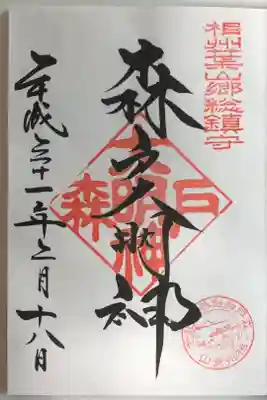 相州葉山郷総鎮守
森戸大明神
森戸
大明神
平成三十一年
月十八日